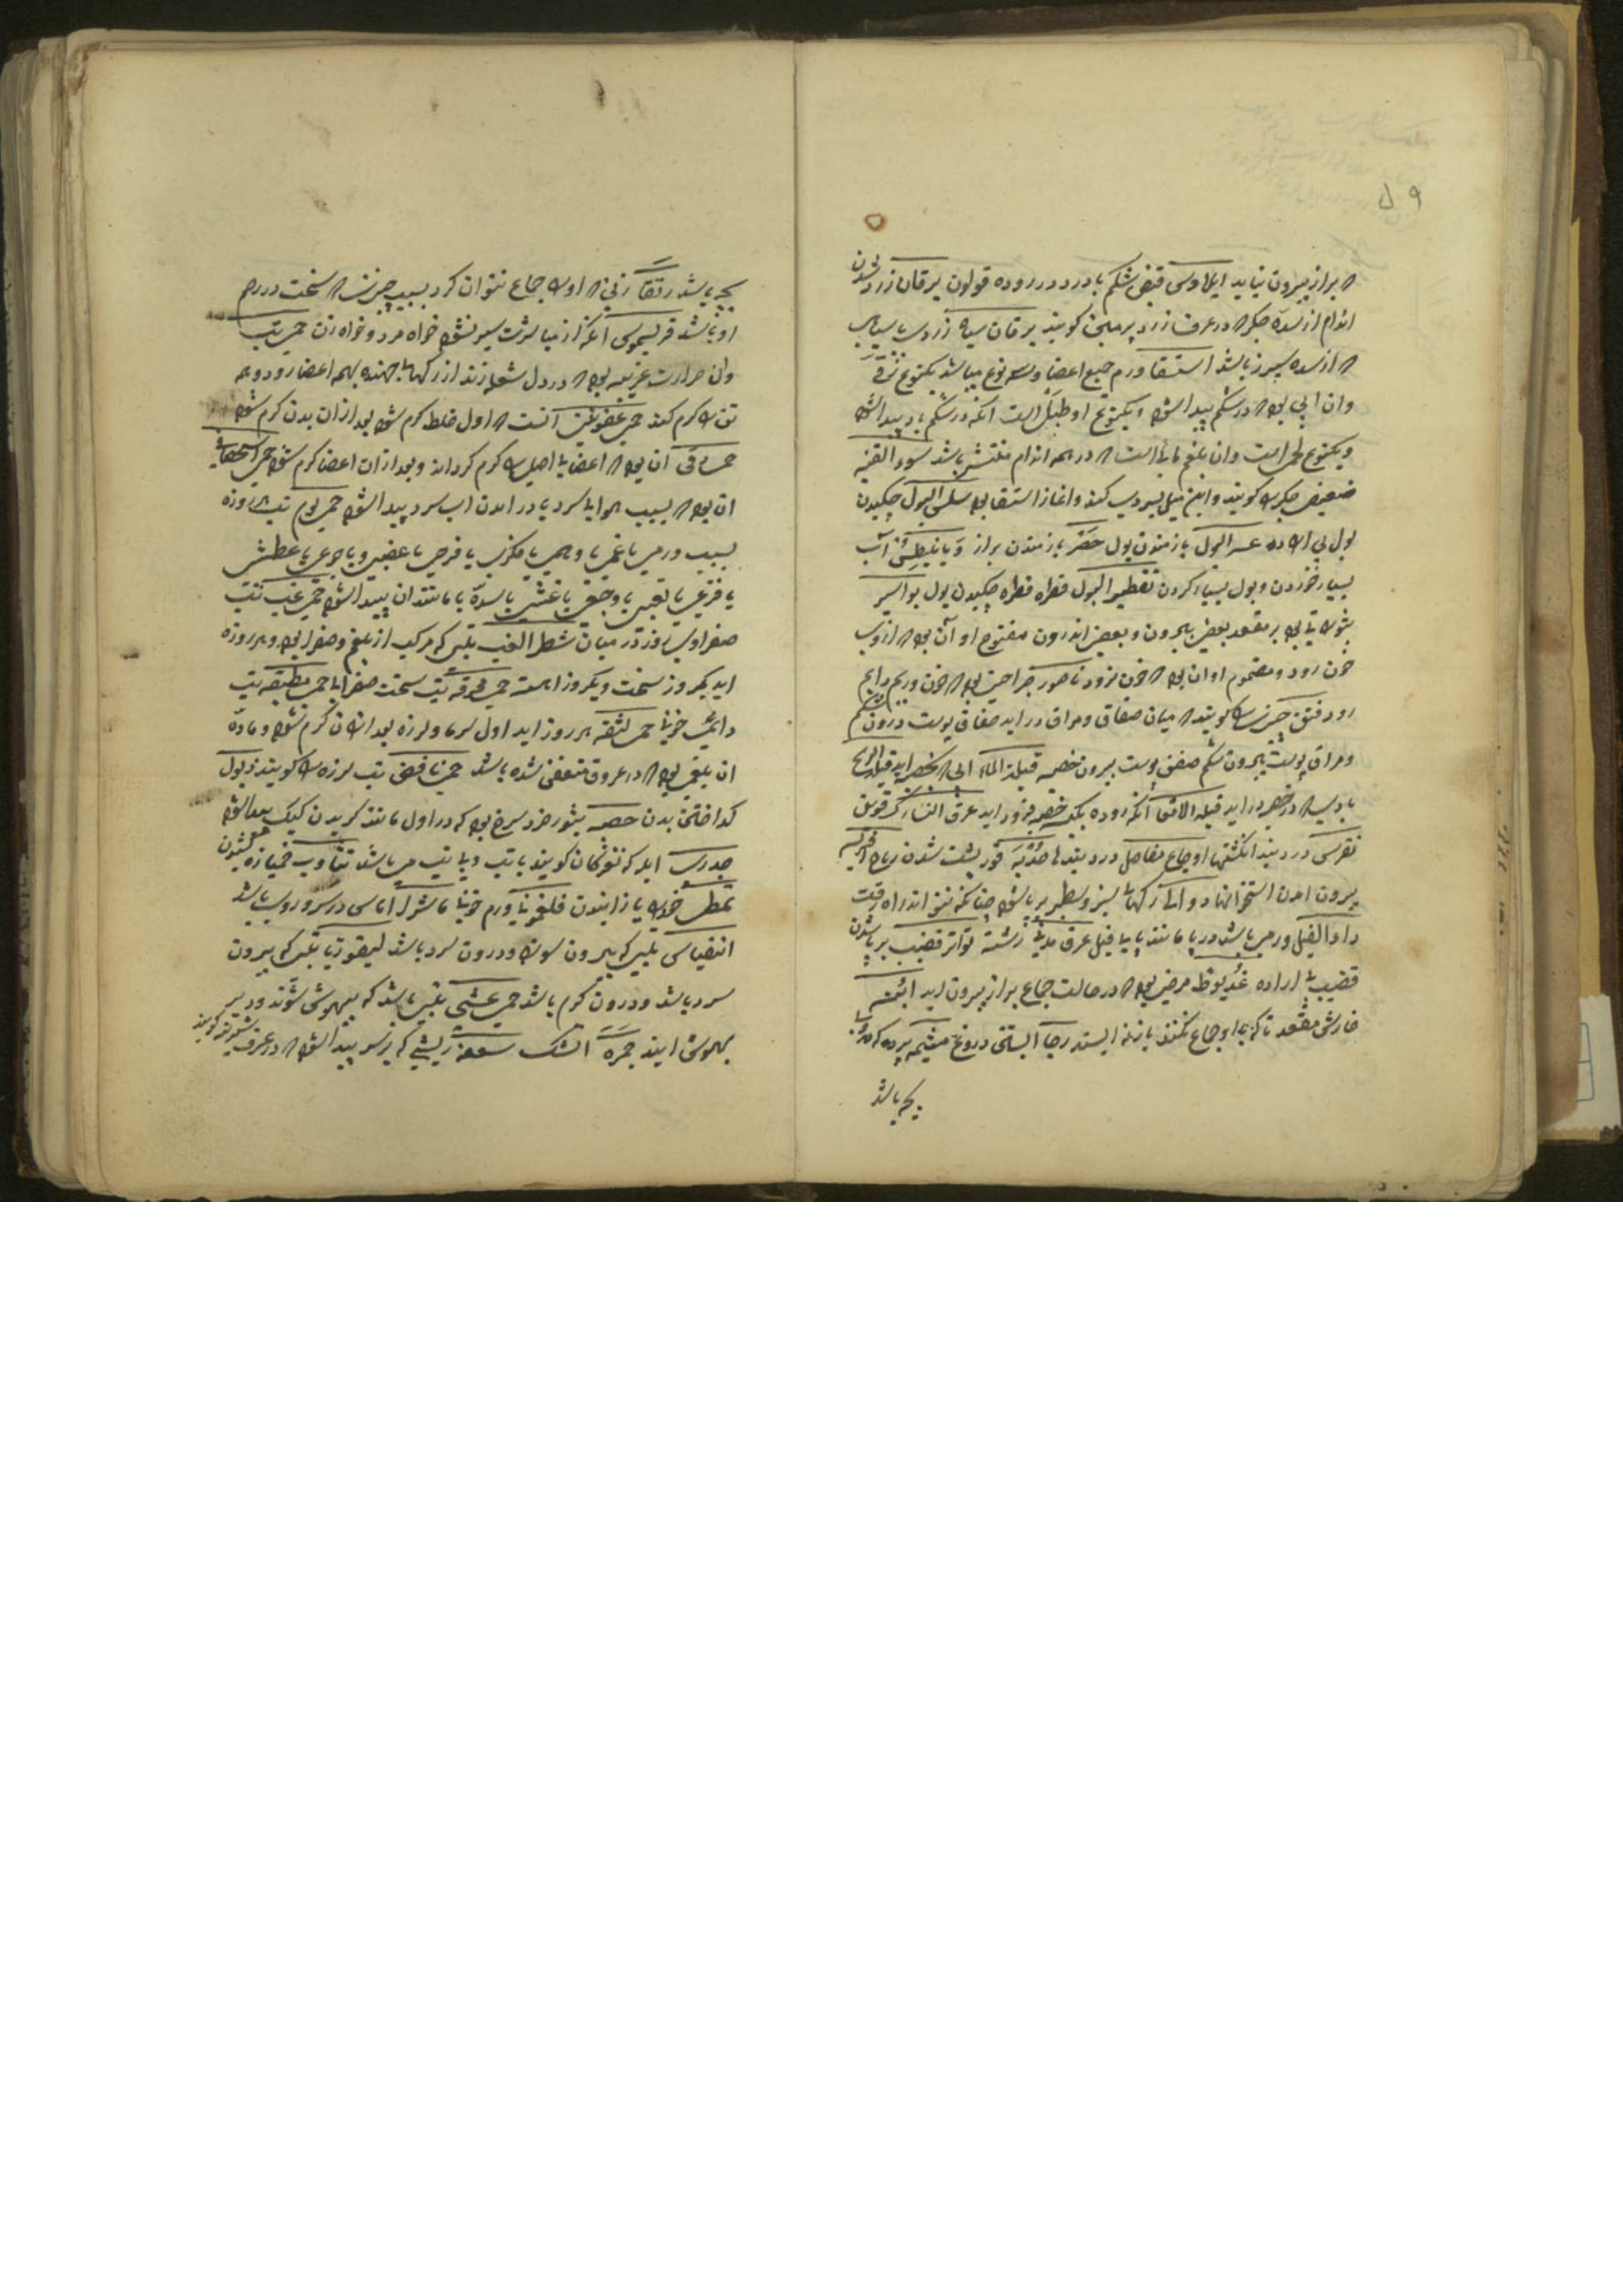 ۵۹
که براز بیرون نیاید ایلاوس قبض شکم با درد در روده قولون یرقان زرد شدن
اندام از سده جگر که در عرف زرد گویند یرقان سیاه زردی با سیاهی
که از سده سپرز باشد استسقا ورم جمیع اعضا و سه نوع میباشد یکنوع زقی
وان ابی بود که در شکم پیدا شود و یکنوع او طبلی است انکه در شکم باد پیدا شود
ویکنوع لحمی است وان بلغم مائی است که در همه اندام منتشر باشد سوء القنیه
ضعیفی جگر را گویند و این میل بسردی کند و اغاز استسقا بود سلس البول چکیدن
بول بی اراده عسر البول بازمندن بول حصر بازمندن براز دیابیطس آب
بسیار خوردن و بول بسیار کردن تقطیر البول قطره قطره چکیدن بول بواسیر
بثورهائی بود بر مقعد بعضی بیرون و بعضی اندرون مفتوح او آن بود که ازوی
خون رود و مضموم او ان بود که خون نرود ناصور جراحتی بود که خون و ریم دایم
رود فتق چیزی را گویند که میان صفاق و مراق در اید صفاق پوست درون شکم
و مراق پوست بیرون شکم صفن پوست بیرون خصیه قیلة الماء ابی که بخصیه اید قیلة الریح
بادی که در خصیه در اید قیلة الامعا انکه روده بکیسه خصیه فرود اید عرق النسا رک
نقرس درد بند انکشتها اوجاع مفاصل درد بندها حدبه کوز پشت شدن ریاح افرسه
بیرون امدن استخوانها دوالی رکهای سبز و سطبر بر پا شود چنانکه نتواند راه رفت
داء الفیل ورمی باشد در پا مانند پای فیل عرق مدنی رشته تواتر قضیب بر پا شدن
قضیب بی اراده غدیوط مرضی بود که در حالت جماع براز بیرون اید ابنه
خارش مقعد تا که با او جماع نکنند باز نه ایستد رجا ابستنی دروغ مشیمه پرده که در او
بچه باشد
بچه باشد رتقا زنی که او را جماع نتوان کرد بسبب چیزی که سخت در رحم
او باشد فریسموس انکه از مباشرت سیر نشود خواه مرد و خواه زن حمی تب
وان حرارت غریبه بود که در دل شعله زند از رکهای جهنده بهمه اعضا رود و همه
تن را کرم کند حمی عفونت آنست که اول خلط کرم شود بعد ازان بدن کرم شود
حمی دق ان بود که اعضای اصلی را کرم کرداند و بعد ازان اعضا کرم شود حمی استحصافی
ان بود که بسبب هوای سرد یا در امدن اب سرد پیدا شود حمی یوم تب یکروزه
بسبب ورمی یا غمی یا وهمی یا فکری یا فرحی یا غضبی و یا جوعی یا عطش
یا فزعی یا تعبی یا وجعی یا غشی یا سده یا مانند ان پیدا شود حمی غب تب
صفراوی روز در میان شطر الغب تبی که مرکب از بلغم و صفرا بود و هر روزه
اید یکروز سخت و یکروز اهسته حمی محرقه تب سخت صفرا یا حمی مطبقه تب
دایمی خونی حمی لثقه هر روز اید اول سرما و لرزه بعد ازان کرم شود و ماده
ان بلغمی بود که در عروق متعفن شده باشد حمی نافض تب لرزه را گویند ذبول
کداختن بدن حصبه بثور خرد سرخ بود که در اول مانند گزیدن کیک پیدا شود
جدری ابله که ترکان گویند با تب و بی تب می باشد تثاوب خمیازه کشیدن
تمطی خود را یازانیدن فلغمونیا ورم خونی ماشرا اماسی در سر و روی باشد
انتفیاس تبی که بیرون سوزد و درون سرد باشد لیفوریا تبی که بیرون
سرد باشد و درون کرم باشد حمی غشی تبی باشد که بیهوش شوند و دیر
بهوش ایند جمره اتشک سعفه ریشی که بر سر پیدا شود که در عرف شیرینه گویند